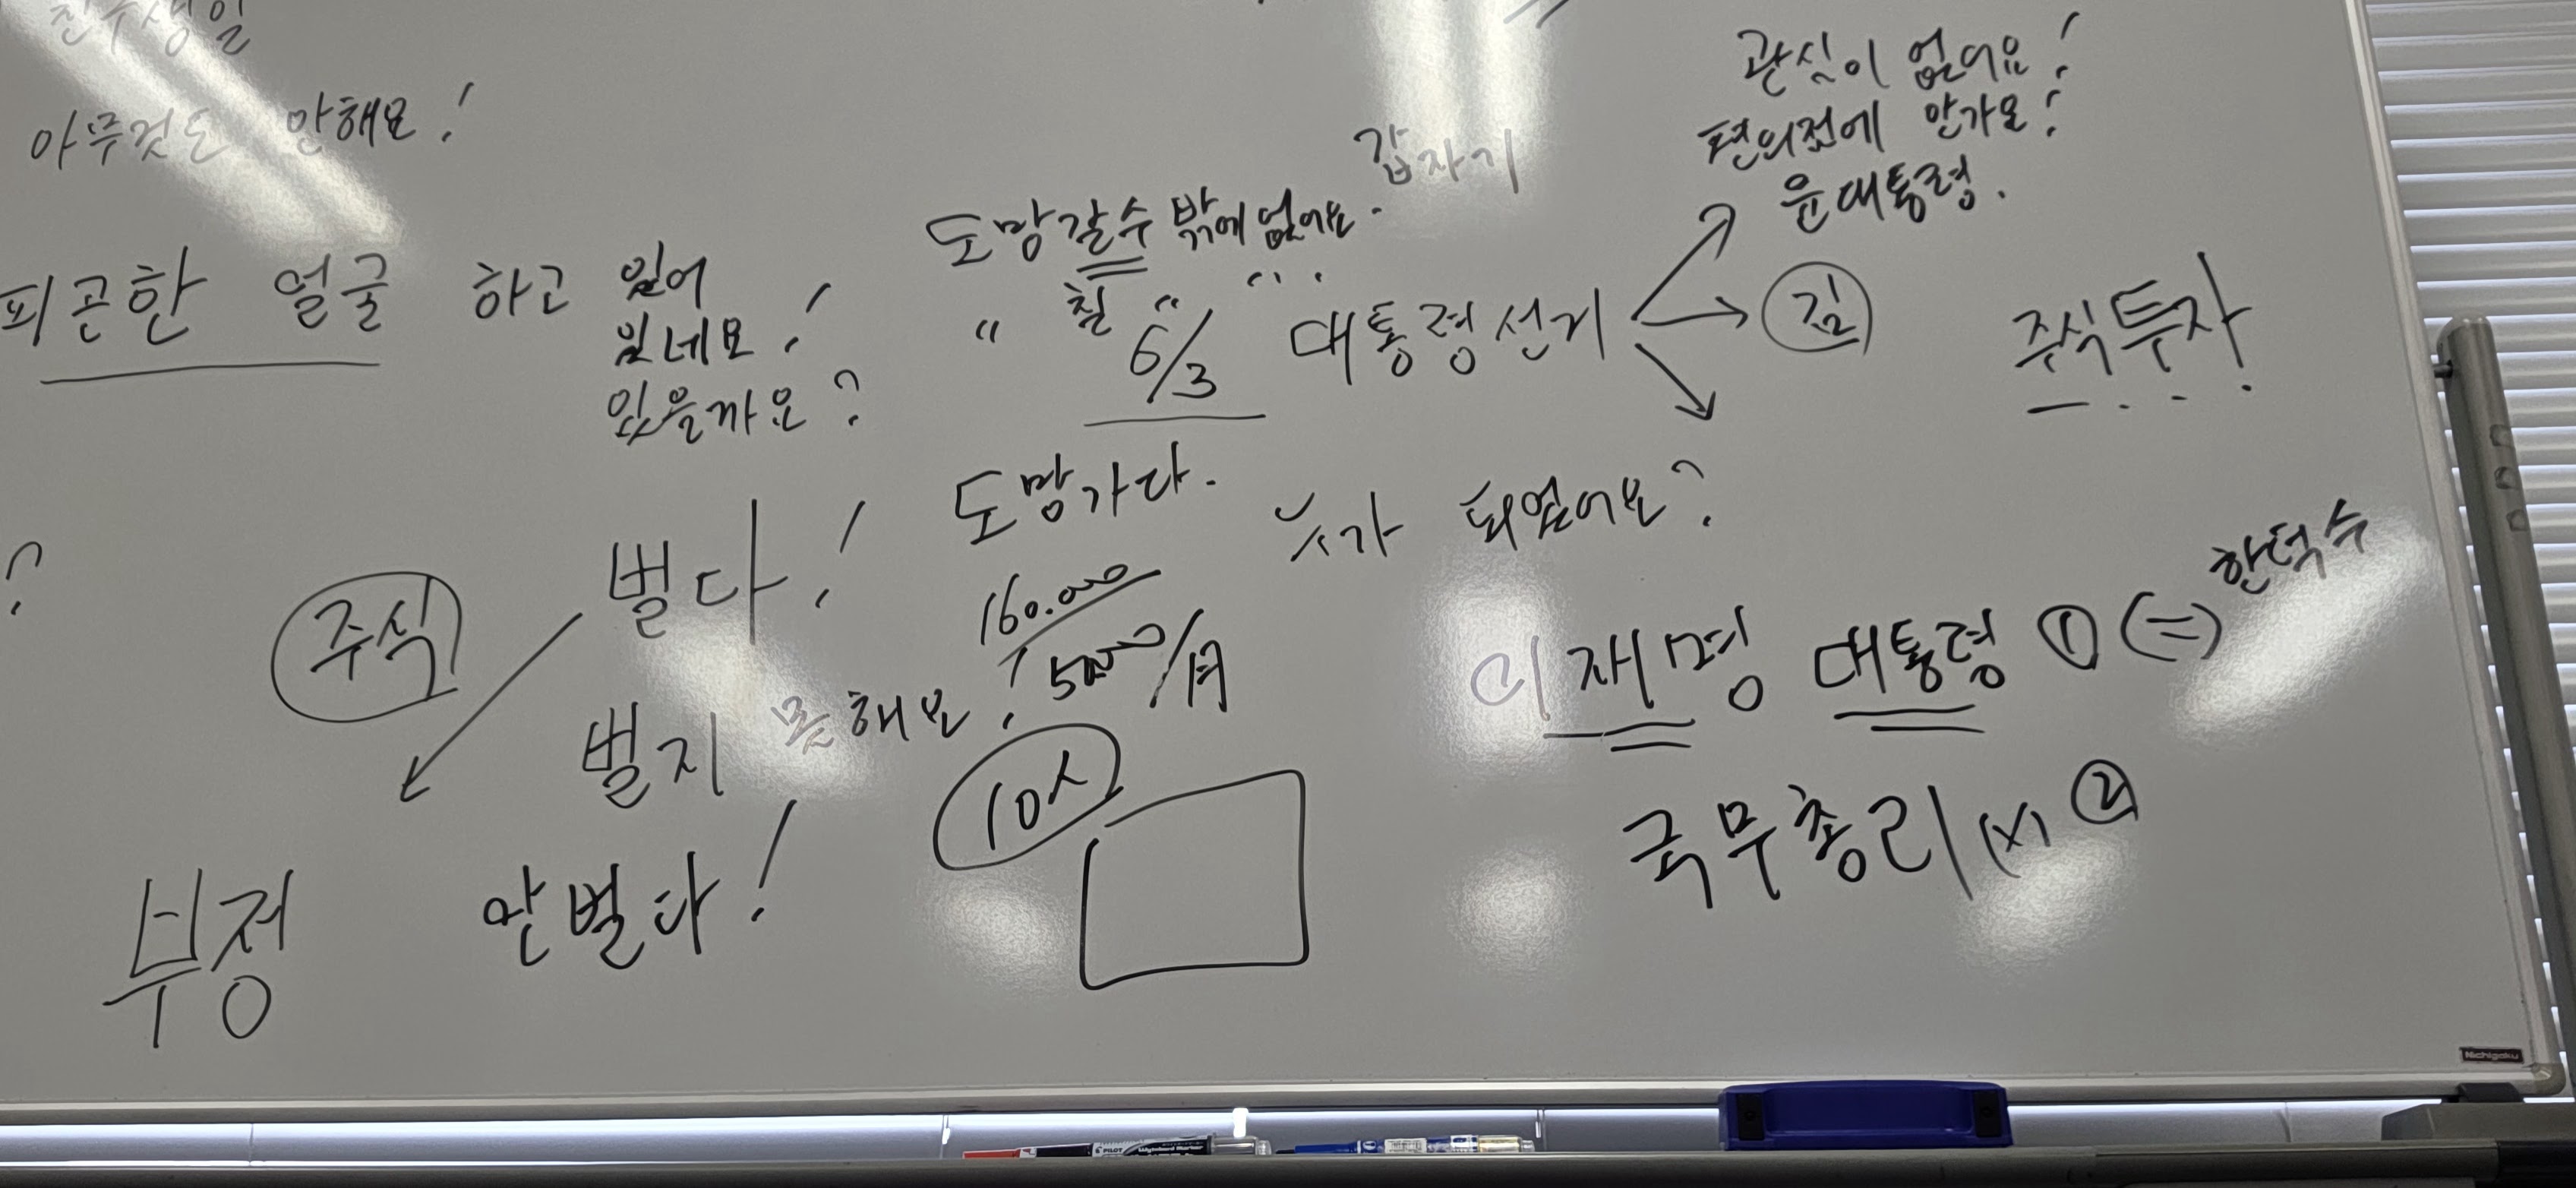 친구생일
아무것도 안해요!
피곤한 얼굴 하고 있어
있네요!
있을까요?
갑자기
도망갈수밖에없어요.
" 칠 " "..
6/3 대통령선거
관심이 없어요!
편의점에 안가요!
윤대통령.
김
주식투자
도망가다.
누가 되었어요?
?
주식
벌다!
160.000
5000/月
벌지 못해요!
10시
안벌다!
부정
이재명 대통령 ① (=) 한덕수
국무총리 (x) ②
Nichigaku
PILOT